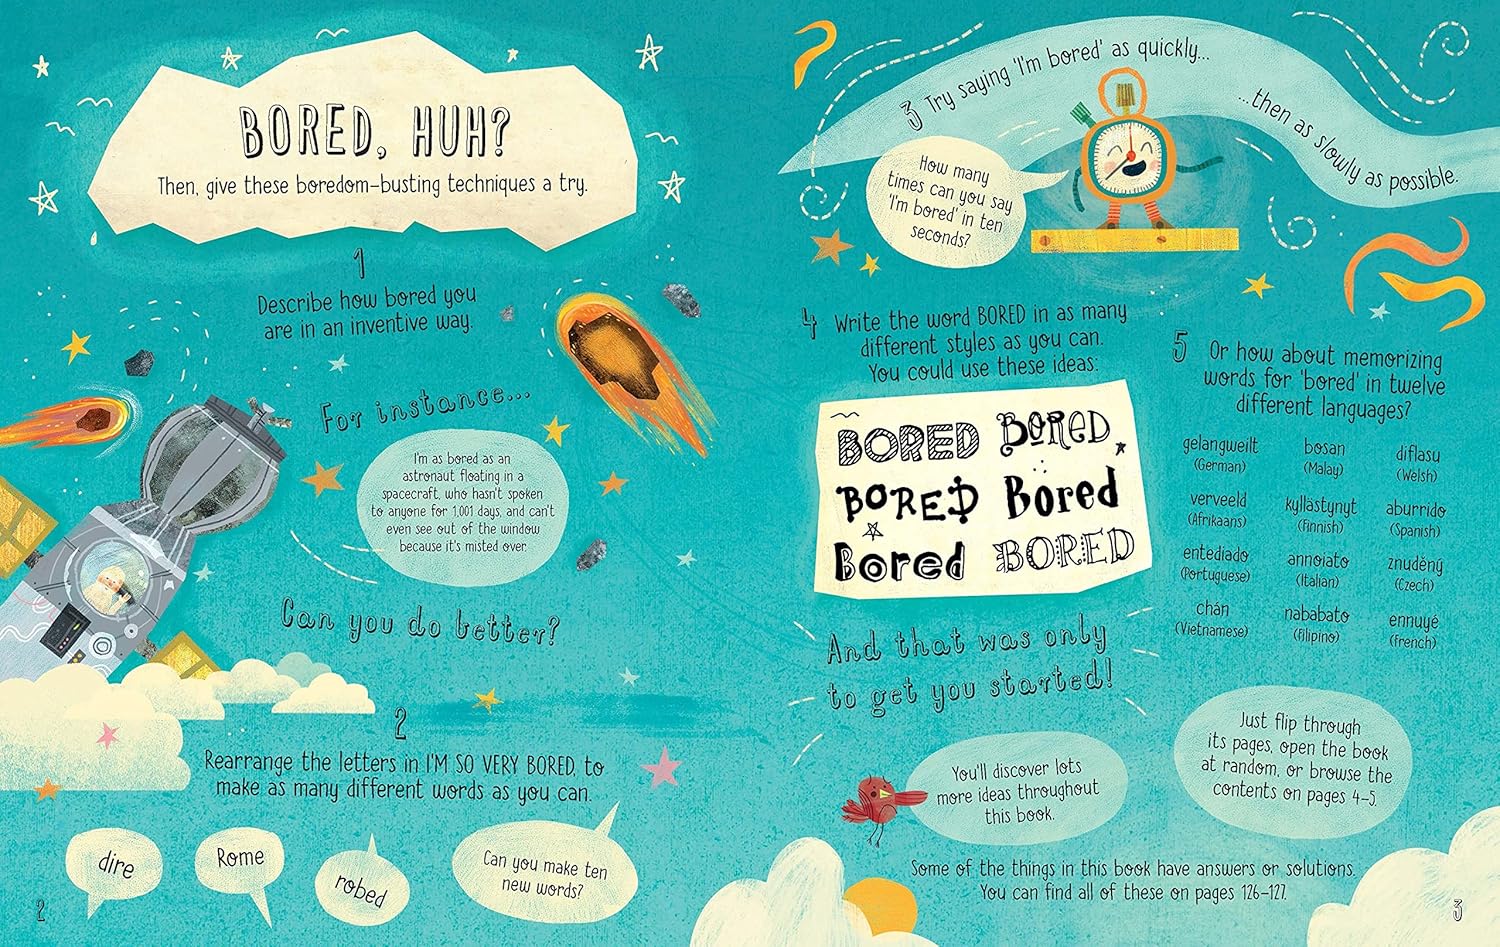 BORED, HUH?
Then, give these boredom-busting techniques a try.
1
Describe how bored you
are in an inventive way.
For instance...
I'm as bored as an
astronaut floating in a
spacecraft, who hasn't spoken
to anyone for 1,001 days, and can't
even see out of the window
because it's misted over.
Can you do better?
2
Rearrange the letters in I'M SO VERY BORED, to
make as many different words as you can.
dire
Rome
robed
Can you make ten
new words?
2
3 Try saying 'I'm bored' as quickly...
...then as slowly as possible.
How many
times can you say
'I'm bored' in ten
seconds?
4 Write the word BORED in as many
different styles as you can.
You could use these ideas:
BORED BORED
BORED Bored
Bored BORED
And that was only
to get you started!
5 Or how about memorizing
words for 'bored' in twelve
different languages?
gelangweilt
(German)
bosan
(Malay)
diflasu
(Welsh)
verveeld
(Afrikaans)
kyllästynyt
(Finnish)
aburrido
(Spanish)
entediado
(Portuguese)
annoiato
(Italian)
znuděný
(Czech)
chán
(Vietnamese)
nababato
(Filipino)
ennuyé
(French)
You'll discover lots
more ideas throughout
this book.
Just flip through
its pages, open the book
at random, or browse the
contents on pages 4-5.
Some of the things in this book have answers or solutions.
You can find all of these on pages 126-127.
3